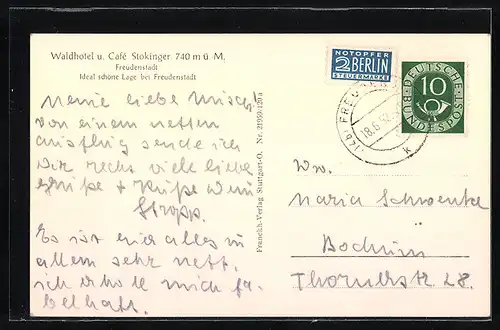 Waldhotel u. Café Stokinger 740 m ü. M.
Freudenstadt
Ideal schöne Lage bei Freudenstadt
Meine liebe
von einem netten
Ausflug sende ich
Dir recht viele liebe
Grüße + Küße Dein
Es ist hier alles in
allem sehr nett,
ich erhole mich fa-
belhaft.
Franckh-Verlag Stuttgart-O. Nr. 21959/120a
NOTOPFER
2 BERLIN
STEUERMARKE
DEUTSCHE BUNDESPOST
10
18.6.52
k
Maria
Bochum
28.